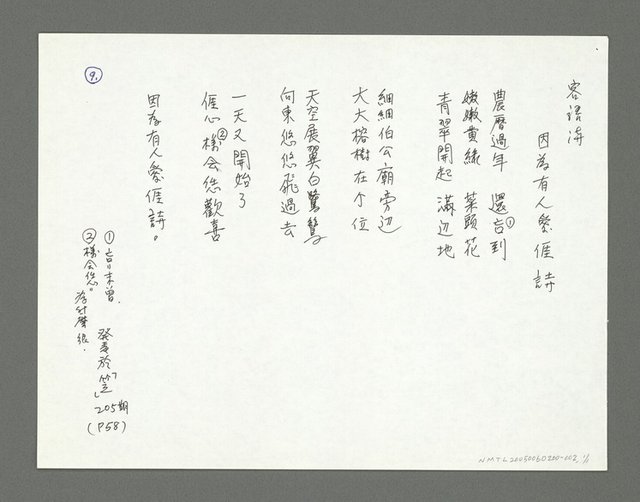 ⑨.
客語詩
因為有人愛𠊎詩
農曆過年 還吂①到
嫩嫩黃綠 菜頭花
青翠開起 滿边地
細細伯公廟旁边
大大榕樹在个位
天空展翼白鷺鷥
向東悠悠飛過去
一天又開始了
𠊎心樣②会恁歡喜
因為有人愛𠊎詩。
①吂：未曾.
②樣会恁。為什麼很.
發表於「笠」205期
(P58)
NMTL20050050200-002, 1/1